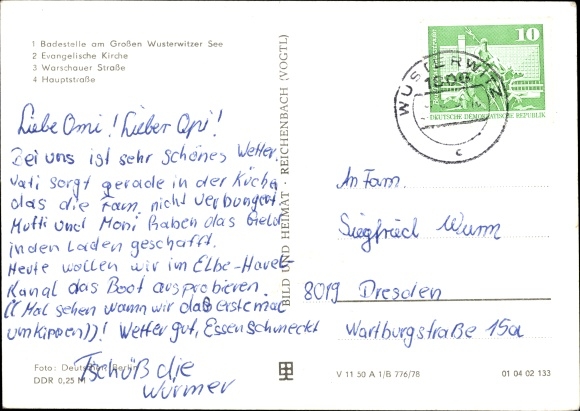 1 Badestelle am Großen Wusterwitzer See
2 Evangelische Kirche
3 Warschauer Straße
4 Hauptstraße
Liebe Omi! Lieber Opi!
Bei uns ist sehr schönes Wetter.
Vati sorgt gerade in der Küche
das die Fam. nicht verhungert.
Mutti und Moni haben das Geld
in den Laden geschafft.
Heute wollen wir im Elbe-Havel-
Kanal das Boot ausprobieren.
((Mal sehen wann wir das erste mal
umkippen))! Wetter gut, Essen schmeckt
Tschüß die
Würmer
Foto: Berlin
DDR 0,25 M
BILD UND HEIMAT · REICHENBACH (VOGTL)
10
DEUTSCHE DEMOKRATISCHE REPUBLIK
WUSTERWITZ
1806
c
An Fam.
Siegfried Wurm
8019 Dresden
Wartburgstraße 15a
V 11 50 A 1/B 776/78
01 04 02 133